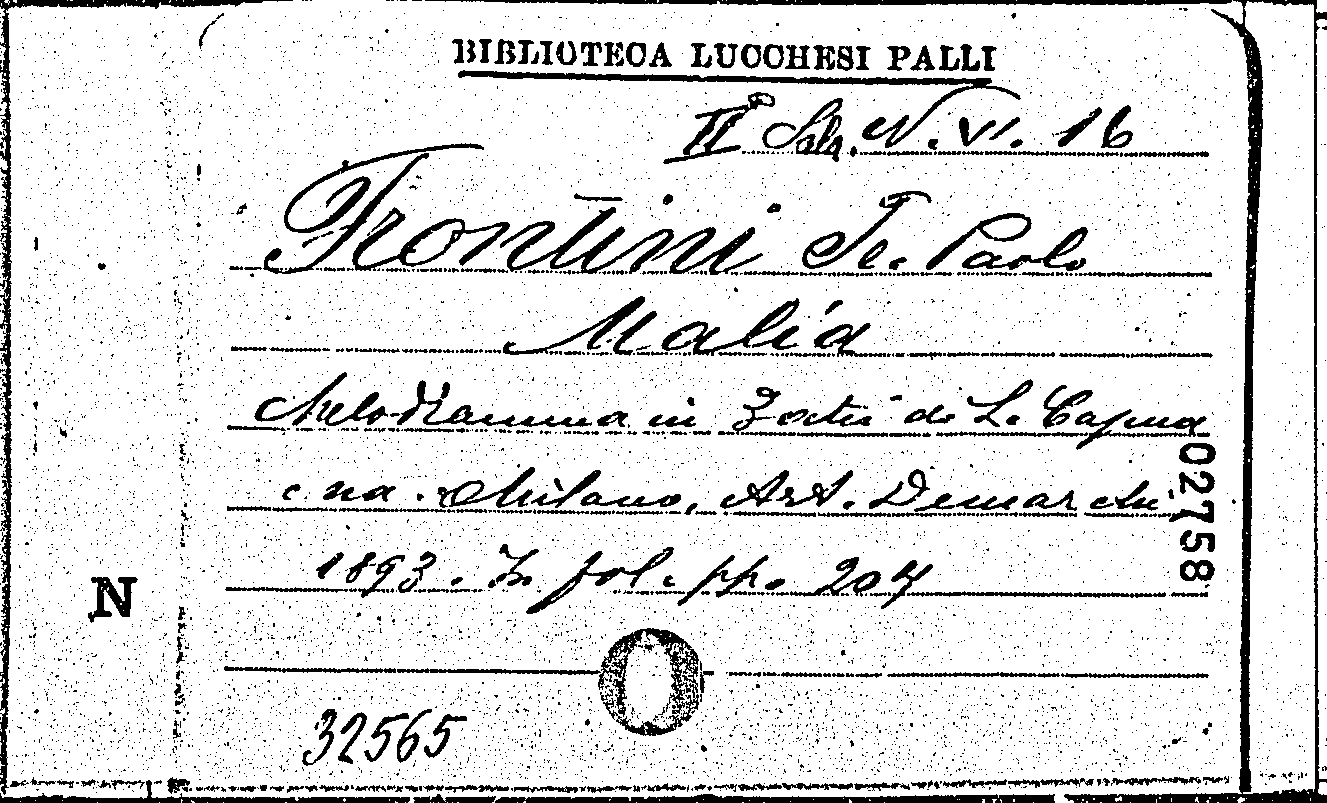 BIBLIOTECA LUCCHESI PALLI
II Sala N. VI. 16
Frontini Fr. Paolo
Malia
Melodramma in 3 atti di L. Capua
na. Milano, Art. Demarchi,
1893. In fol. pp. 207
02758
N
32565